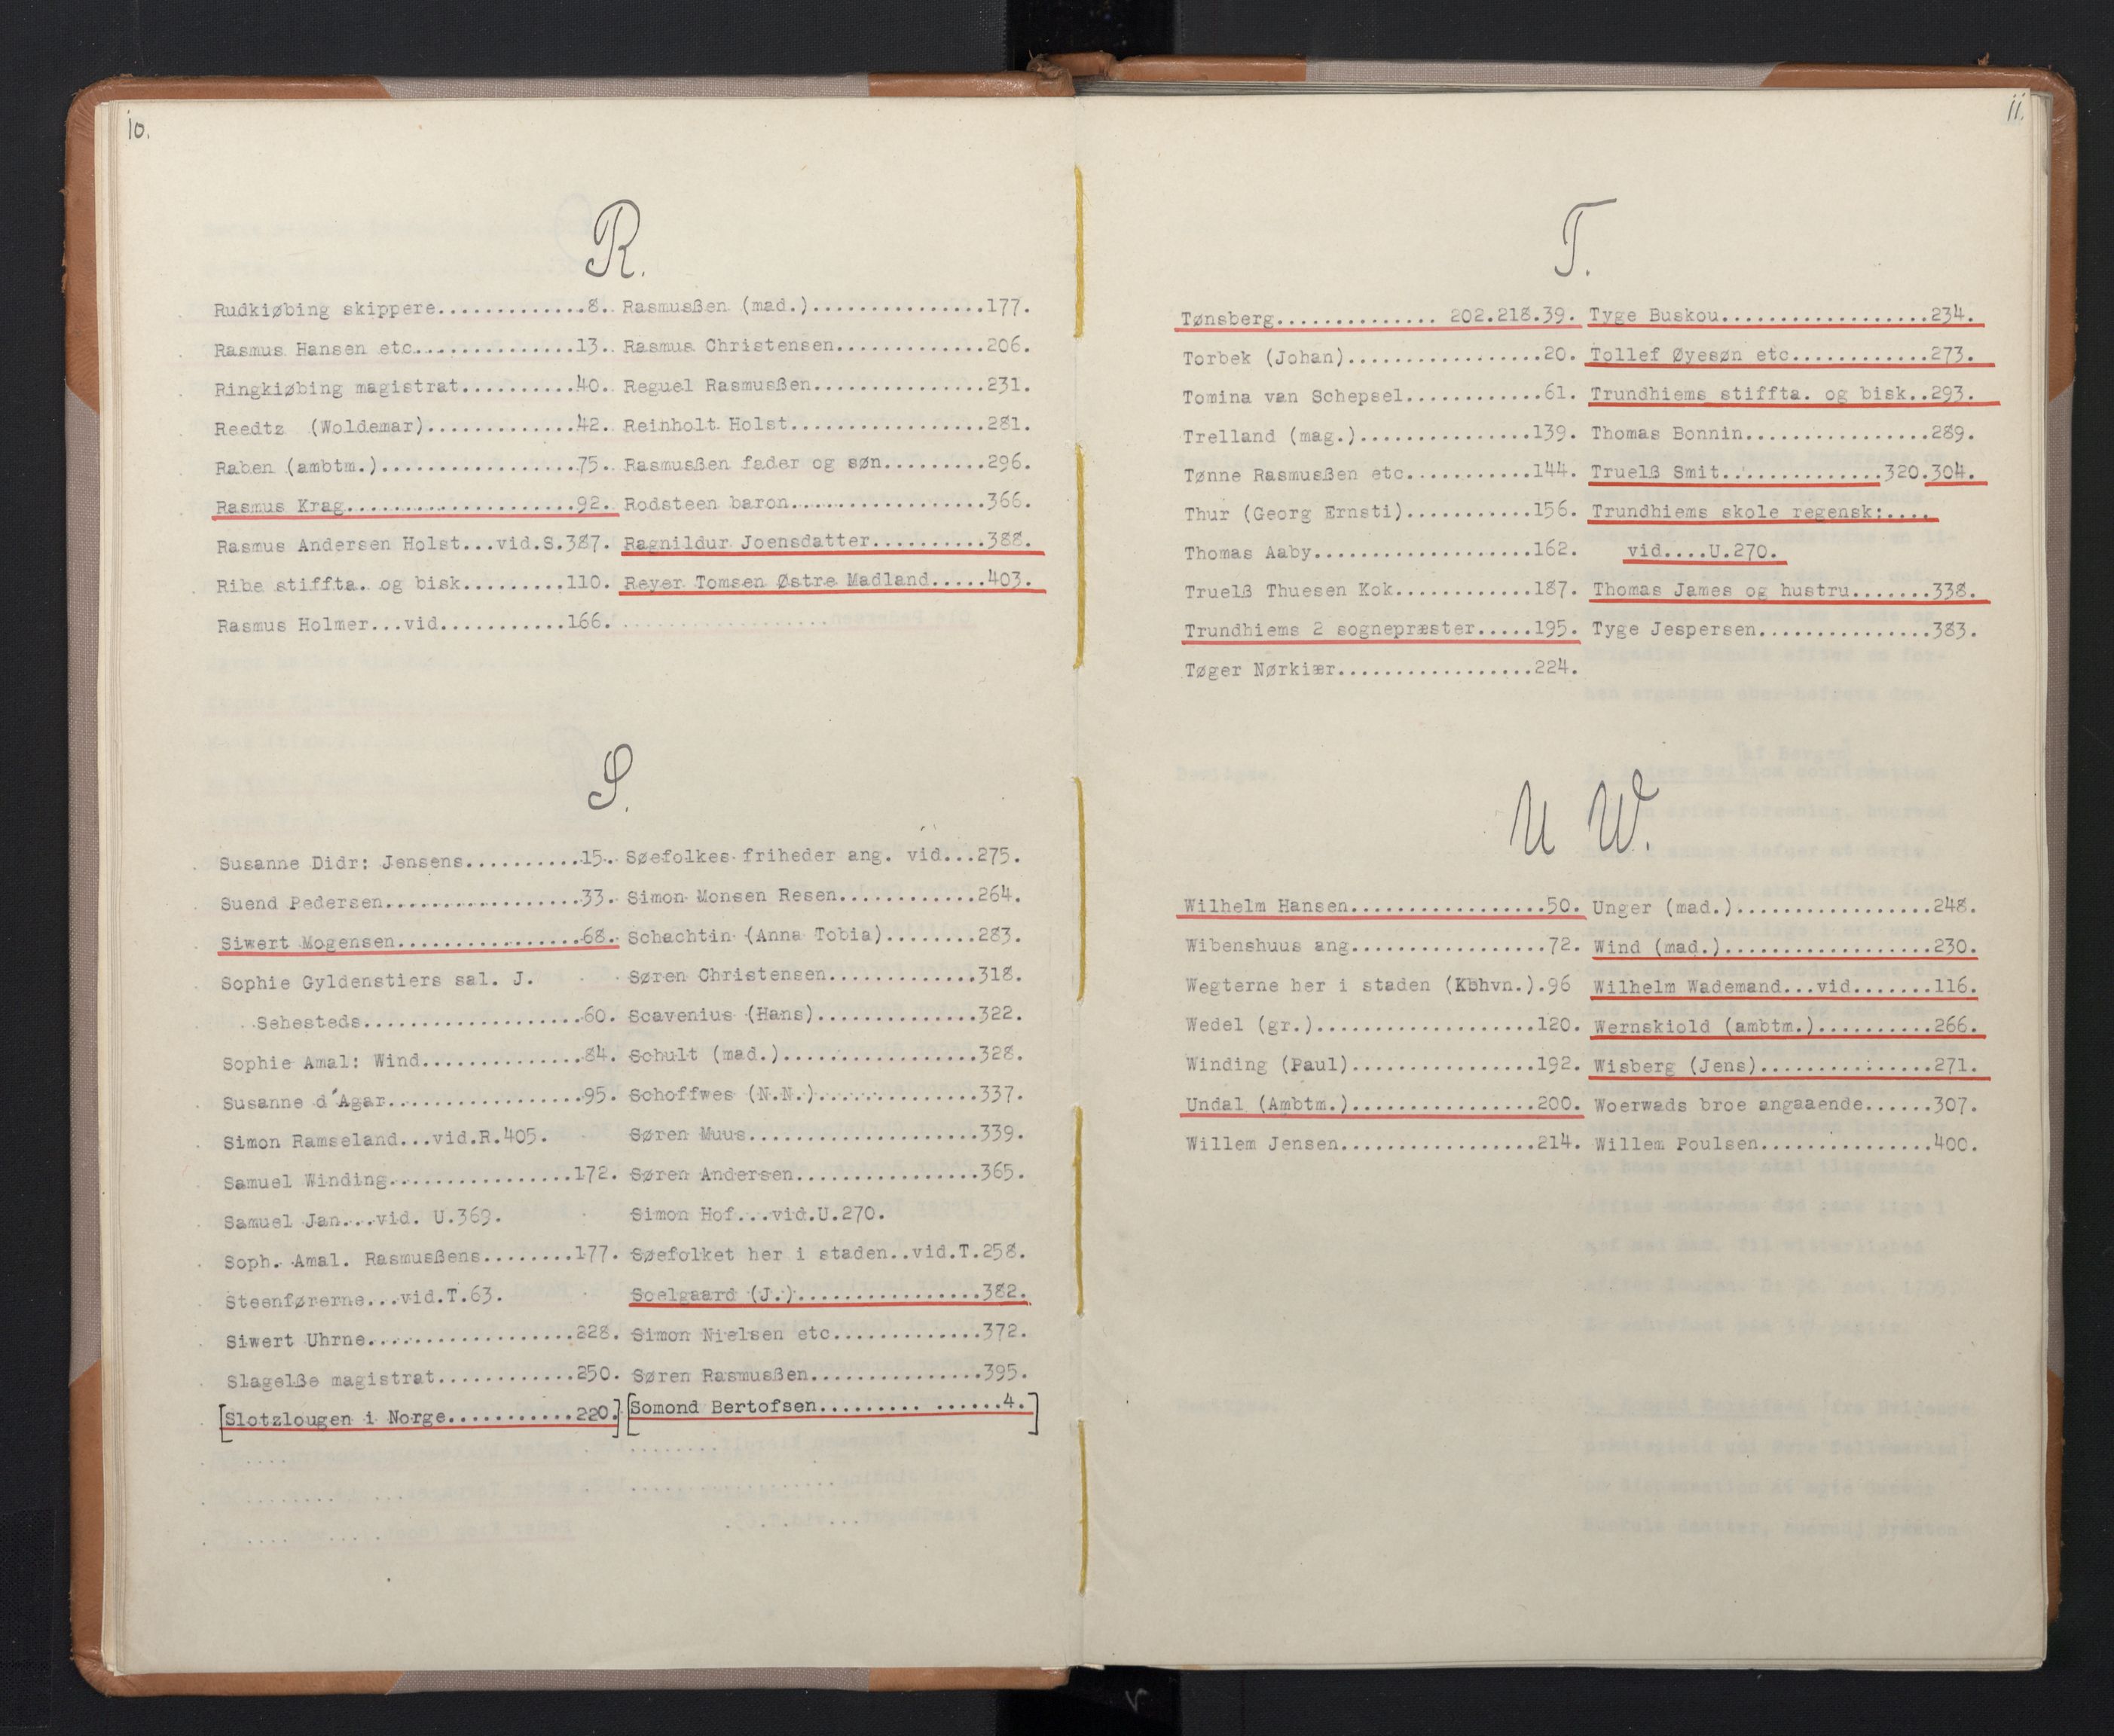 10.
R.
Rudkiøbing skippere..............8.
Rasmus Hansen etc...............13.
Ringkiøbing magistrat..........40.
Reedtz (Woldemar).............42.
Raben (ambtm.)..................75.
Rasmus Krag.....................92.
Rasmus Andersen Holst...vid.S.387.
Ribe stiffta. og bisk.........110.
Rasmus Holmer...vid...........166.
Rasmusßen (mad.)...............177.
Rasmus Christensen.............206.
Reguel Rasmusßen...............231.
Reinholt Holst.................281.
Rasmusßen fader og søn.........296.
Rodsteen baron.................366.
Ragnildur Joensdatter..........388.
Reyer Tomsen Østre Madland.....403.
S.
Susanne Didr: Jensens..........15.
Suend Pedersen.................33.
Siwert Mogensen................68.
Sophie Gyldenstiers sal. J.
Sehesteds....................60.
Sophie Amal: Wind..............84.
Susanne d'Agar.................95.
Simon Ramseland...vid.R.405.
Samuel Winding................172.
Samuel Jan...vid. U.369.
Soph. Amal. Rasmusßens........177.
Steenførerne...vid.T.63.
Siwert Uhrne..................228.
Slagelße magistrat............250.
[Slotzlougen i Norge...........220.]
Søefolkes friheder ang. vid...275.
Simon Monsen Resen............264.
Schachtin (Anna Tobia)........283.
Søren Christensen.............318.
Scavenius (Hans)..............322.
Schult (mad.).................328.
Schoffwes (N.N.)..............337.
Søren Muus....................339.
Søren Andersen................365.
Simon Hof...vid.U.270.
Søefolket her i staden..vid.T.258.
Soelgaard (J.)................382.
Simon Nielsen etc.............372.
Søren Rasmusßen...............395.
[Somond Bertofsen......... ......4.]
11.
T.
Tønsberg.............. 202.218.39.
Torbek (Johan).................20.
Tomina van Schepsel............61.
Trelland (mag.)...............139.
Tønne Rasmusßen etc...........144.
Thur (Georg Ernsti)...........156.
Thomas Aaby...................162.
Truelß Thuesen Kok............187.
Trundhiems 2 sognepræster.....195.
Tøger Nørkiær.................224.
Tyge Buskou..................234.
Tollef Øyesøn etc............273.
Trundhiems stiffta. og bisk..293.
Thomas Bonnin................289.
Truelß Smit..............320.304.
Trundhiems skole regensk:....
vid....U.270.
Thomas James og hustru.......338.
Tyge Jespersen...............383.
U W.
Wilhelm Hansen.................50.
Wibenshuus ang.................72.
Wegterne her i staden (Kbhvn.).96
Wedel (gr.)...................120.
Winding (Paul)................192.
Undal (Ambtm.)................200.
Willem Jensen.................214.
Unger (mad.).................248.
Wind (mad.)..................230.
Wilhelm Wademand...vid.......116.
Wernskiold (ambtm.)..........266.
Wisberg (Jens)...............271.
Woerwads broe angaaende......307.
Willem Poulsen...............400.